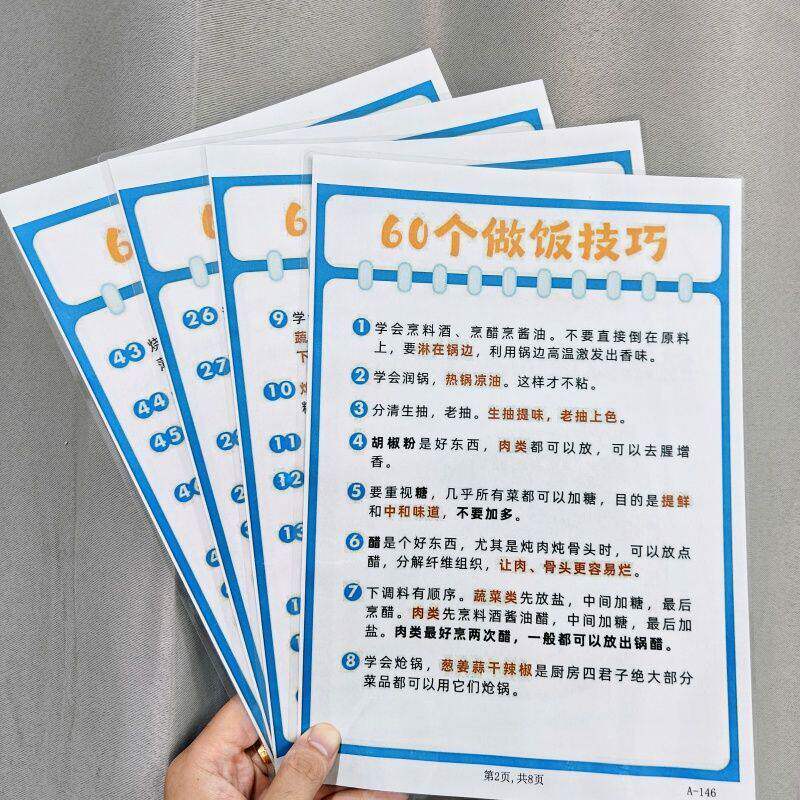 60个做饭技巧
1 学会烹料酒、烹醋烹酱油。不要直接倒在原料
上，要淋在锅边，利用锅边高温激发出香味。
2 学会润锅，热锅凉油。这样才不粘。
3 分清生抽，老抽。生抽提味，老抽上色。
4 胡椒粉是好东西，肉类都可以放，可以去腥增
香。
5 要重视糖，几乎所有菜都可以加糖，目的是提鲜
和中和味道，不要加多。
6 醋是个好东西，尤其是炖肉炖骨头时，可以放点
醋，分解纤维组织，让肉、骨头更容易烂。
7 下调料有顺序。蔬菜类先放盐，中间加糖，最后
烹醋。肉类先烹料酒酱油醋，中间加糖，最后加
盐。肉类最好烹两次醋，一般都可以放出锅醋。
8 学会炝锅，葱姜蒜干辣椒是厨房四君子绝大部分
菜品都可以用它们炝锅。
第2页,共8页
A-146
6
9 学
蔬
下
10
11
12
13
6
26
27
6
43 烧
44
45